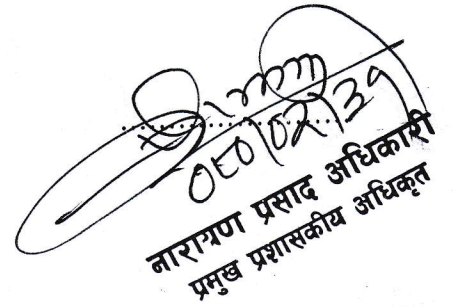 ०८०/०२/३१
नारायण प्रसाद अधिकारी
प्रमुख प्रशासकीय अधिकृत